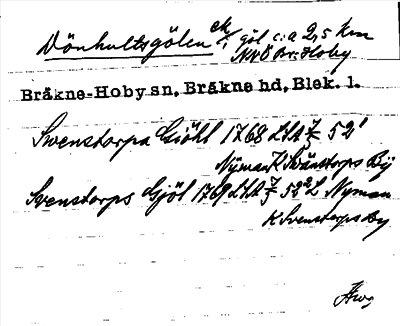 Dönhultsgölen göl c:a 2,5 km
NNÖ Br:Hoby
Bräkne-Hoby sn, Bräkne hd, Blek. l.
Swenstorpa Giöhl 1768 LSA 52'
Nyman K Swänstorps By
Svenstorps Gjöl 1769 LSA 52²L' Nyman
K Svenstorps By